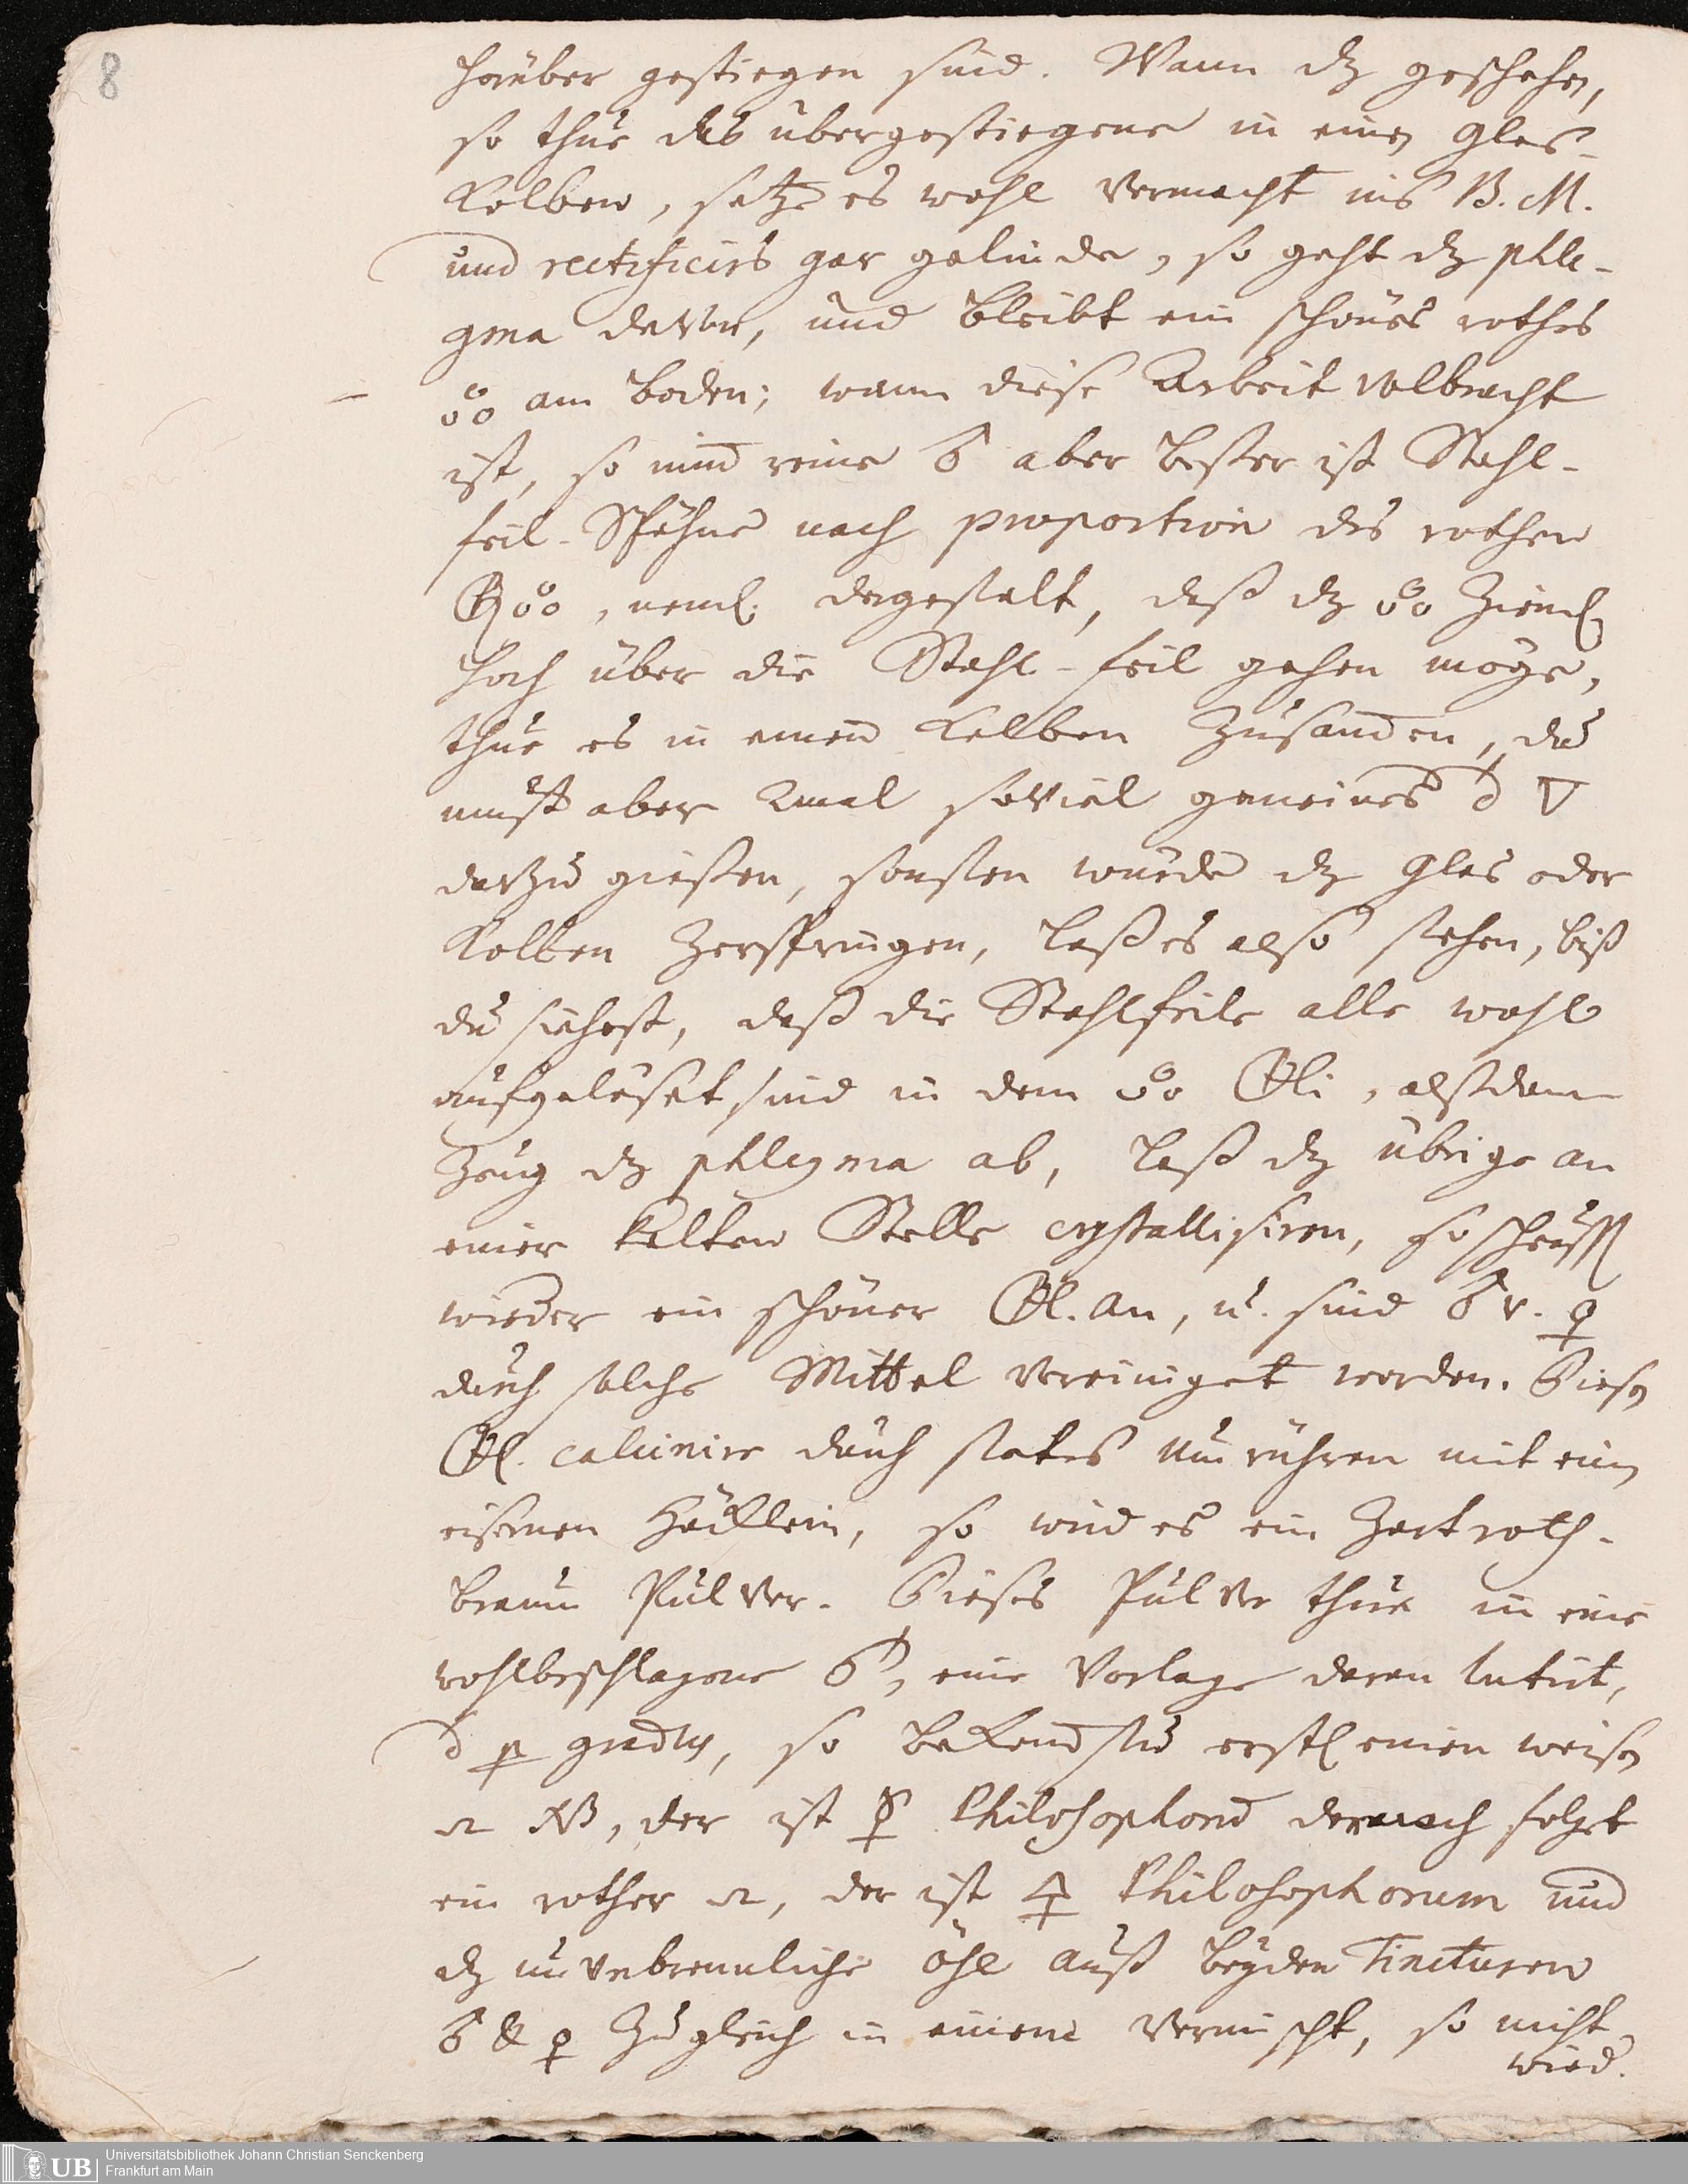 8
herüber gestiegen sind. Wann dz geschehen,
so thue das übergestiegene in einen Glas-
Kolben, setze es wohl vermacht ins B. M.
und rectificirs gar gelinde, so geht dz phle-
gma davon, und bleibt ein schönes rothes
am boden; wann diese Arbeit volbracht
ist, so nim reine ♂ aber besser ist Stahl-
feil-Spähne nach proportion des rothen
, neml. dergestalt, daß dz zieml.
hoch über die Stahl-feil gehen möge,
thue es in einen Kolben zusammen, du
must aber 2mal soviel gemeines 🜄
darzu gießen, sonsten würde dz Glas oder
Kolben zerspringen, laß es also stehen, biß
du siehest, daß die Stahlfeile alle wohl
aufgelöset sind in dem , alßdann
zeug dz phlegma ab, laß dz übrige an
einer kalten Stelle crystallisiren, so scheust
wieder ein schöner an, u. sind ♂ u. ♀
durch solche Mittel vereiniget worden. Diesen
calcinire durch stetes umrühren mit einem
eisernen Häcklein, so wird es ein zart roth-
braun Pulver. Dieses Pulver thue in eine
wohlbeschlagene , eine Vorlage daran lutirt,
gradus, so bekomstu erstl. einen weisen
, der ist ☿ Philosophorum darnach folget
ein rother , der ist 🜍 Philosophorum und
dz unverbrennliche öhl auß beyden Tincturen
♂ & ♀ zugleich in einem vermischt, so nicht
wird.
Universitätsbibliothek Johann Christian Senckenberg
Frankfurt am Main
UB